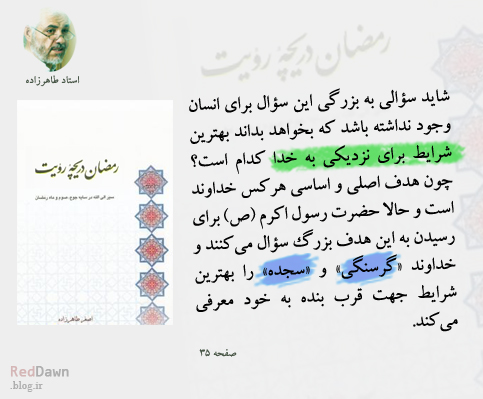 استاد طاهرزاده
رمضان دریچهٔ رؤیت
رمضان دریچهٔ رؤیت
سیر الی الله در سایه جوع، صوم و ماه رمضان
اصغر طاهرزاده
شاید سؤالی به بزرگی این سؤال برای انسان
وجود نداشته باشد که بخواهد بداند بهترین
شرایط برای نزدیکی به خدا کدام است؟
چون هدف اصلی و اساسی هرکس خداوند
است و حالا حضرت رسول اکرم (ص) برای
رسیدن به این هدف بزرگ سؤال می‌کنند و
خداوند «گرسنگی» و «سجده» را بهترین
شرایط جهت قرب بنده به خود معرفی
می‌کند.
صفحه ۳۵
RedDawn
.blog.ir